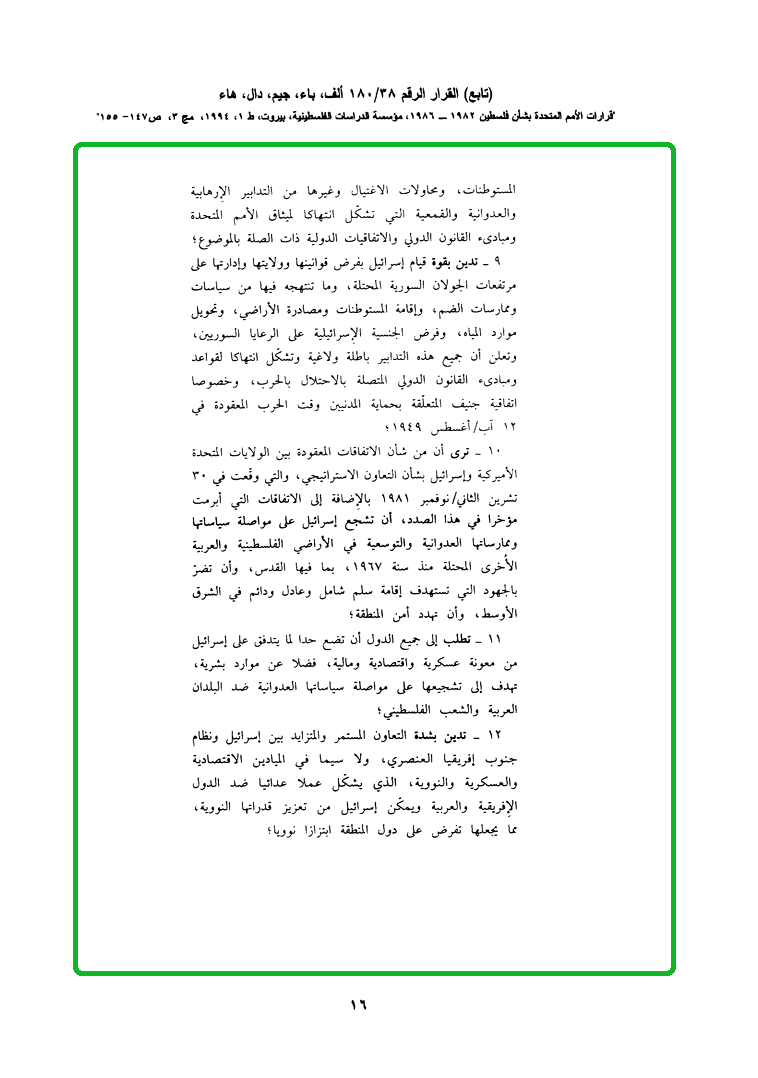 (تابع) القرار الرقم ١٨٠/٣٨ ألف، باء، جيم، دال، هاء
"قرارات الأمم المتحدة بشأن فلسطين ١٩٨٢ ــ ١٩٨٦، مؤسسة الدراسات الفلسطينية، بيروت، ط ١، ١٩٩٤، مج ٣، ص١٤٧- ١٥٥"
المستوطنات، ومحاولات الاغتيال وغيرها من التدابير الإرهابية
والعدوانية والقمعية التي تشكّل انتهاكا لميثاق الأمم المتحدة
ومبادىء القانون الدولي والاتفاقيات الدولية ذات الصلة بالموضوع؛
٩ ـ تدين بقوة قيام إسرائيل بفرض قوانينها وولايتها وإدارتها على
مرتفعات الجولان السورية المحتلة، وما تنتهجه فيها من سياسات
وممارسات الضم، وإقامة المستوطنات ومصادرة الأراضي، وتحويل
موارد المياه، وفرض الجنسية الإسرائيلية على الرعايا السوريين،
وتعلن أن جميع هذه التدابير باطلة ولاغية وتشكّل انتهاكا لقواعد
ومبادىء القانون الدولي المتصلة بالاحتلال بالحرب، وخصوصا
اتفاقية جنيف المتعلّقة بحماية المدنيين وقت الحرب المعقودة في
١٢ آب/أغسطس ١٩٤٩؛
١٠ ـ ترى أن من شأن الاتفاقات المعقودة بين الولايات المتحدة
الأميركية وإسرائيل بشأن التعاون الاستراتيجي، والتي وقّعت في ٣٠
تشرين الثاني/نوفمبر ١٩٨١ بالإضافة إلى الاتفاقات التي أبرمت
مؤخرا في هذا الصدد، أن تشجع إسرائيل على مواصلة سياساتها
وممارساتها العدوانية والتوسعية في الأراضي الفلسطينية والعربية
الأُخرى المحتلة منذ سنة ١٩٦٧، بما فيها القدس، وأن تضرّ
بالجهود التي تستهدف إقامة سلم شامل وعادل ودائم في الشرق
الأوسط، وأن تهدد أمن المنطقة؛
١١ ـ تطلب إلى جميع الدول أن تضع حدا لما يتدفق على إسرائيل
من معونة عسكرية واقتصادية ومالية، فضلا عن موارد بشرية،
تهدف إلى تشجيعها على مواصلة سياساتها العدوانية ضد البلدان
العربية والشعب الفلسطيني؛
١٢ ـ تدين بشدة التعاون المستمر والمتزايد بين إسرائيل ونظام
جنوب إفريقيا العنصري، ولا سيما في الميادين الاقتصادية
والعسكرية والنووية، الذي يشكّل عملا عدائيا ضد الدول
الإفريقية والعربية ويمكّن إسرائيل من تعزيز قدراتها النووية،
مما يجعلها تفرض على دول المنطقة ابتزازا نوويا؛
١٦